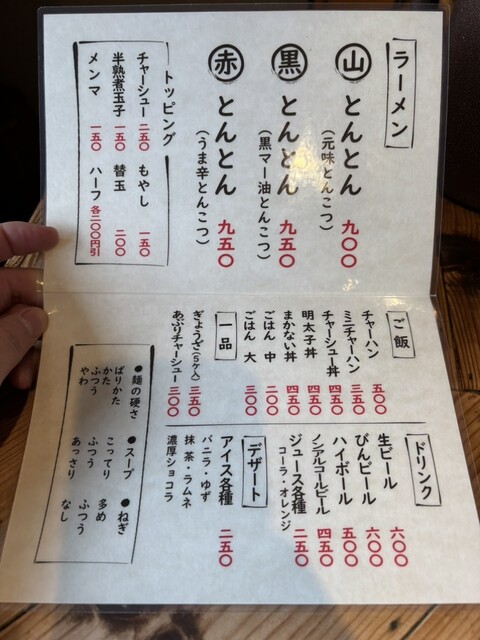 ラーメン
山 とんとん 九〇〇
（元味とんこつ）
黒 とんとん 九五〇
（黒マー油とんこつ）
赤 とんとん 九五〇
（うま辛とんこつ）
トッピング
チャーシュー 二五〇
もやし 一五〇
半熟煮玉子 一五〇
替玉 二〇〇
メンマ 一五〇
ハーフ 各二〇〇円引
ご飯
チャーハン 五〇〇
ミニチャーハン 三五〇
チャーシュー丼 四五〇
明太子丼 四五〇
まかない丼 四五〇
ごはん 中 二〇〇
ごはん 大 三〇〇
一品
ぎょうざ（5ケ入） 三五〇
あぶりチャーシュー 三〇〇
ドリンク
生ビール 六〇〇
びんビール 六〇〇
ハイボール 五〇〇
ノンアルコールビール 四五〇
ジュース各種 二五〇
コーラ・オレンジ
デザート
アイス各種 二五〇
バニラ・ゆず
抹茶・ラムネ
濃厚ショコラ
●麺の硬さ
ばりかた
かた
ふつう
やわ
●スープ
こってり
ふつう
あっさり
●ねぎ
多め
ふつう
なし